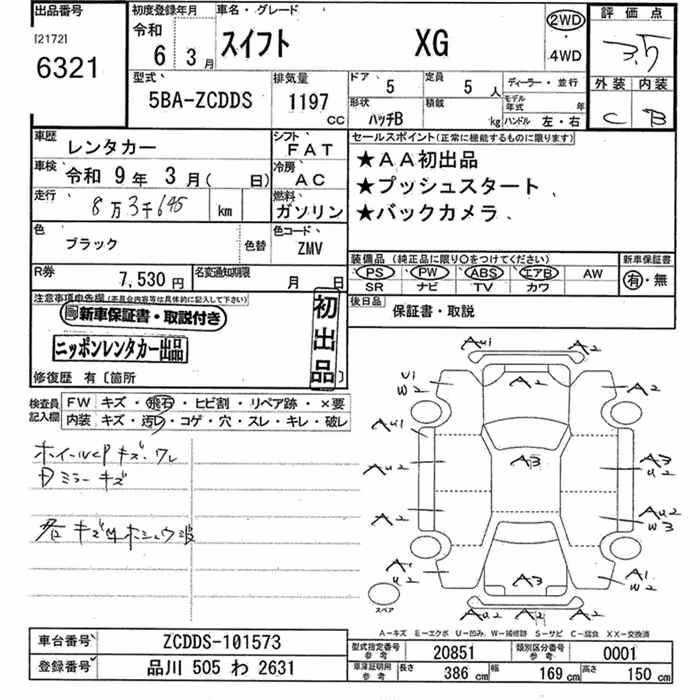 出品番号
[2172]
6321
初度登録年月
令和
6年 3月
車名・グレード
スイフト XG
2WD
・
4WD
評価点
3.5
外装 内装
C B
型式
5BA-ZCDDS
排気量
1197
CC
ドア 5
定員 5人
形状 ハッチB
積載 kg
ディーラー・並行
モデル年式 年
ハンドル 左・右
車歴 レンタカー
シフト FAT
車検 令和 9年 3月( 日)
冷房 AC
走行 8万3千645 km
燃料 ガソリン
色 ブラック
色替
色コード ZMV
R券 7,530円
名変通知期限 月 日
セールスポイント(正常に機能するものに限ります)
★AA初出品
★プッシュスタート
★バックカメラ
装備品(純正品に限り○をつけてください)
PS PW ABS エアB AW
SR ナビ TV カワ
新車保証書
有・無
後日品 保証書・取説
注意事項申告欄(本会会内容等は具体的に記入して下さい)
新車保証書・取説付き
ニッポンレンタカー出品
初出品
修復歴 有〔箇所 〕
検査員記入欄
FW キズ・飛石・ヒビ割・リペア跡・×要
内装 キズ・汚レ・コゲ・穴・スレ・キレ・破レ
ホイールCPキズ・ワレ
Dミラーキズ
各キズ凹ホシュウ波
AU1 A2
U1
W2 A2 A2
AU1
AU2 A3 A3
U2
A2 AU2
W3
A1
U2 A3 A1
W2
A2 A2 A2
スペア
A-キズ E-エクボ U-凹み W-補修跡 S-サビ C-腐食 XX-交換済
車台番号 ZCDDS-101573
登録番号 品川 505 わ 2631
型式指定番号 参考 20851
類別区分番号 参考 0001
車庫証明用 参考 長さ 386 cm 幅 169 cm 高さ 150 cm